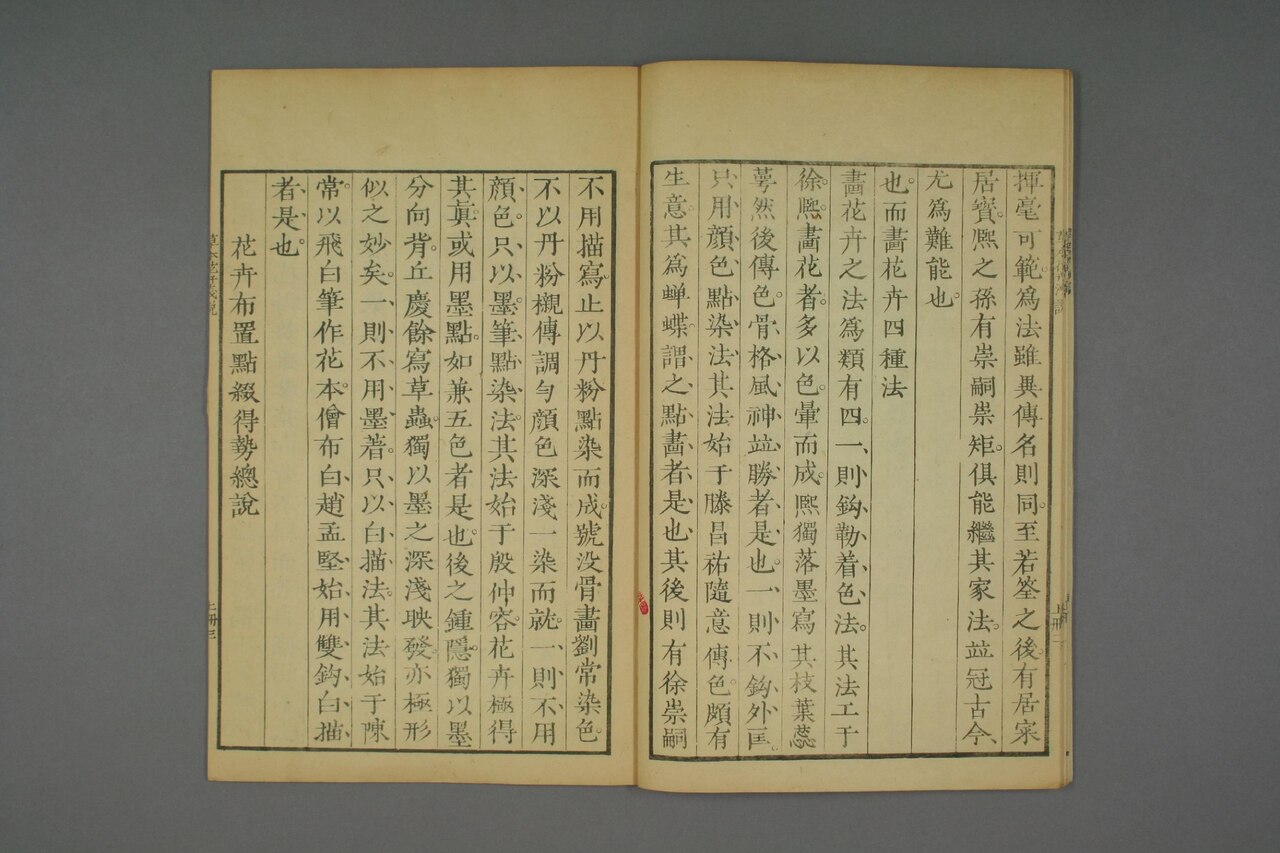 揮毫可範。為法雖異傳名則同。至若筌之後。有居寀
居寶。熈之孫有崇嗣崇矩。俱能繼其家法。竝冠古今、
尤為難能也。
也。而畫花卉四種法
畫花卉之法為類有四。一則鈎勒着色法。其法工于
徐熈。畫花者。多以色暈而成。熈獨落墨寫其枝葉蕊
萼然後傳色。骨格風神竝勝者是也。一則不鈎外匡。
只用顏色點染法。其法始于滕昌祐隨意傳色。頗有
生意。其為蟬蝶。謂之點畫者是也。其後則有徐崇嗣
不用描寫。止以丹粉點染而成。號没骨畫。劉常染色。
不以丹粉襯傳。調勻顏色深淺一染而就。一則不用
顏色。只以墨筆點染法。其法始于殷仲容。花卉極得
其眞。或用墨點。如兼五色者是也。後之鍾隱。獨以墨
分向背。丘慶餘寫草蟲。獨以墨之深淺映發。亦極形
似之妙矣。一則不用墨著。只以白描法。其法始于陳
常。以飛白筆作花本。僧布白、趙孟堅始用雙鈎白描
者是也。
花卉布置點綴得勢總說
上冊三